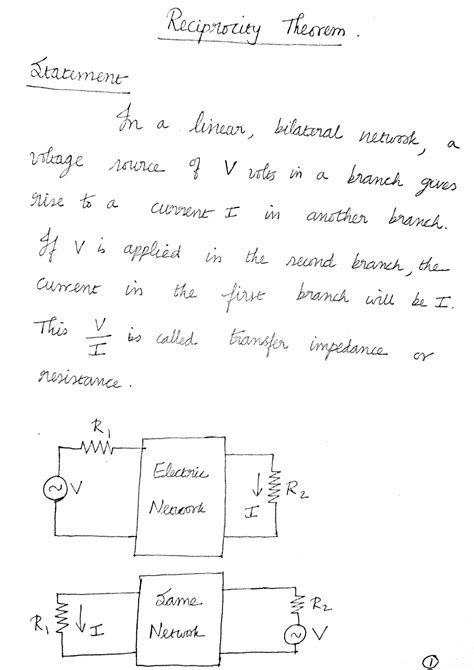 Reciprocity Theorem.
Statement
In a linear, bilateral network, a
voltage source of V volts in a branch gives
rise to a current I in another branch.
If V is applied in the second branch, the
current in the first branch will be I.
This V/I is called transfer impedance or
resistance.
R1
V
Electric
Network
I
R2
R1
I
Same
Network
R2
V
1